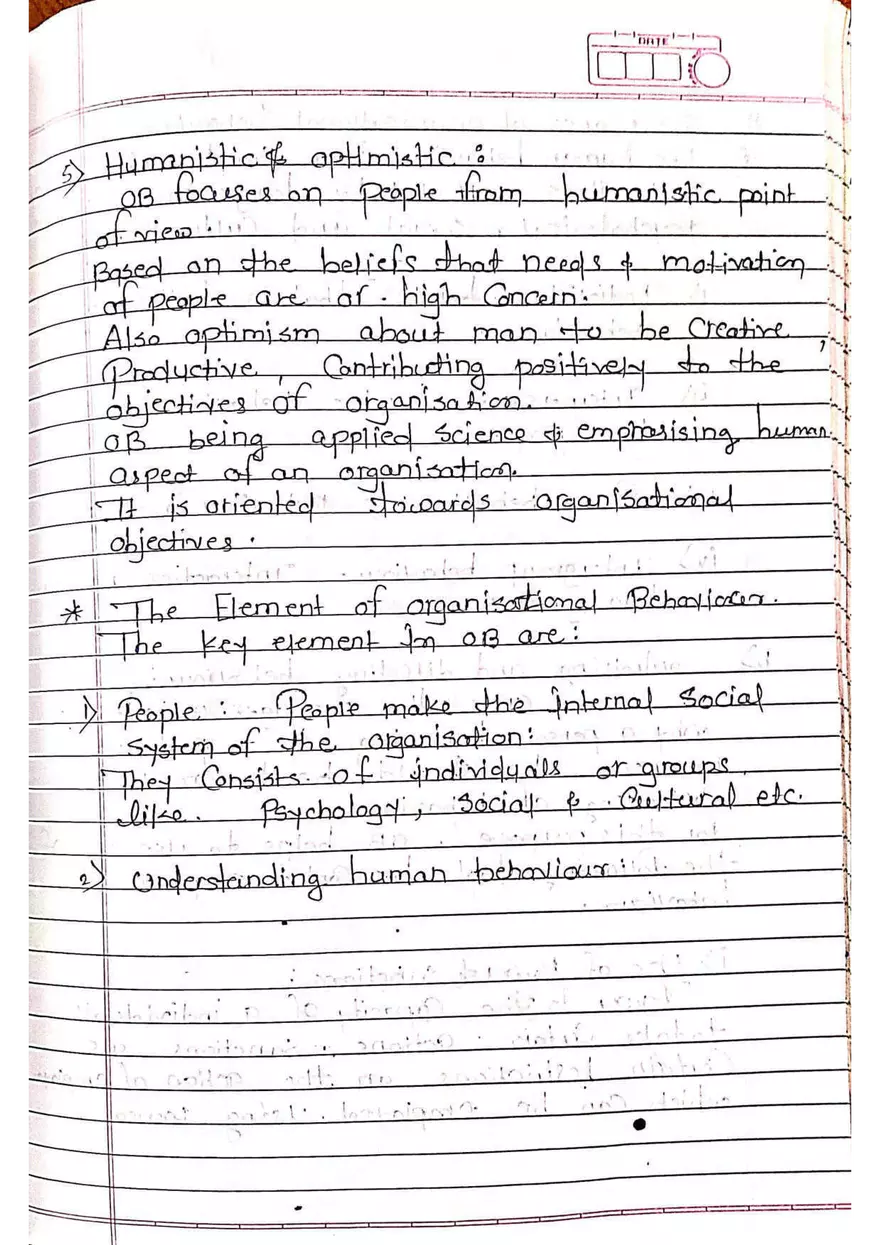 DATE
5) Humanistic & optimistic :
OB focuses on people from humanistic point
of view.
Based on the beliefs that needs & motivation
of people are of high Concern.
Also optimism about man to be Creative,
Productive, Contributing positively to the
objectives of organisation.
OB being applied science & emphasising human
aspect of an organisation.
It is oriented towards organisational
objectives.
* The Element of organisational Behaviour.
The key element In OB are :
1) People : People make the Internal Social
System of the organisation:
They Consists of individuals or groups
like. Psychology, Social & Cultural etc.
2) Understanding human behaviour :